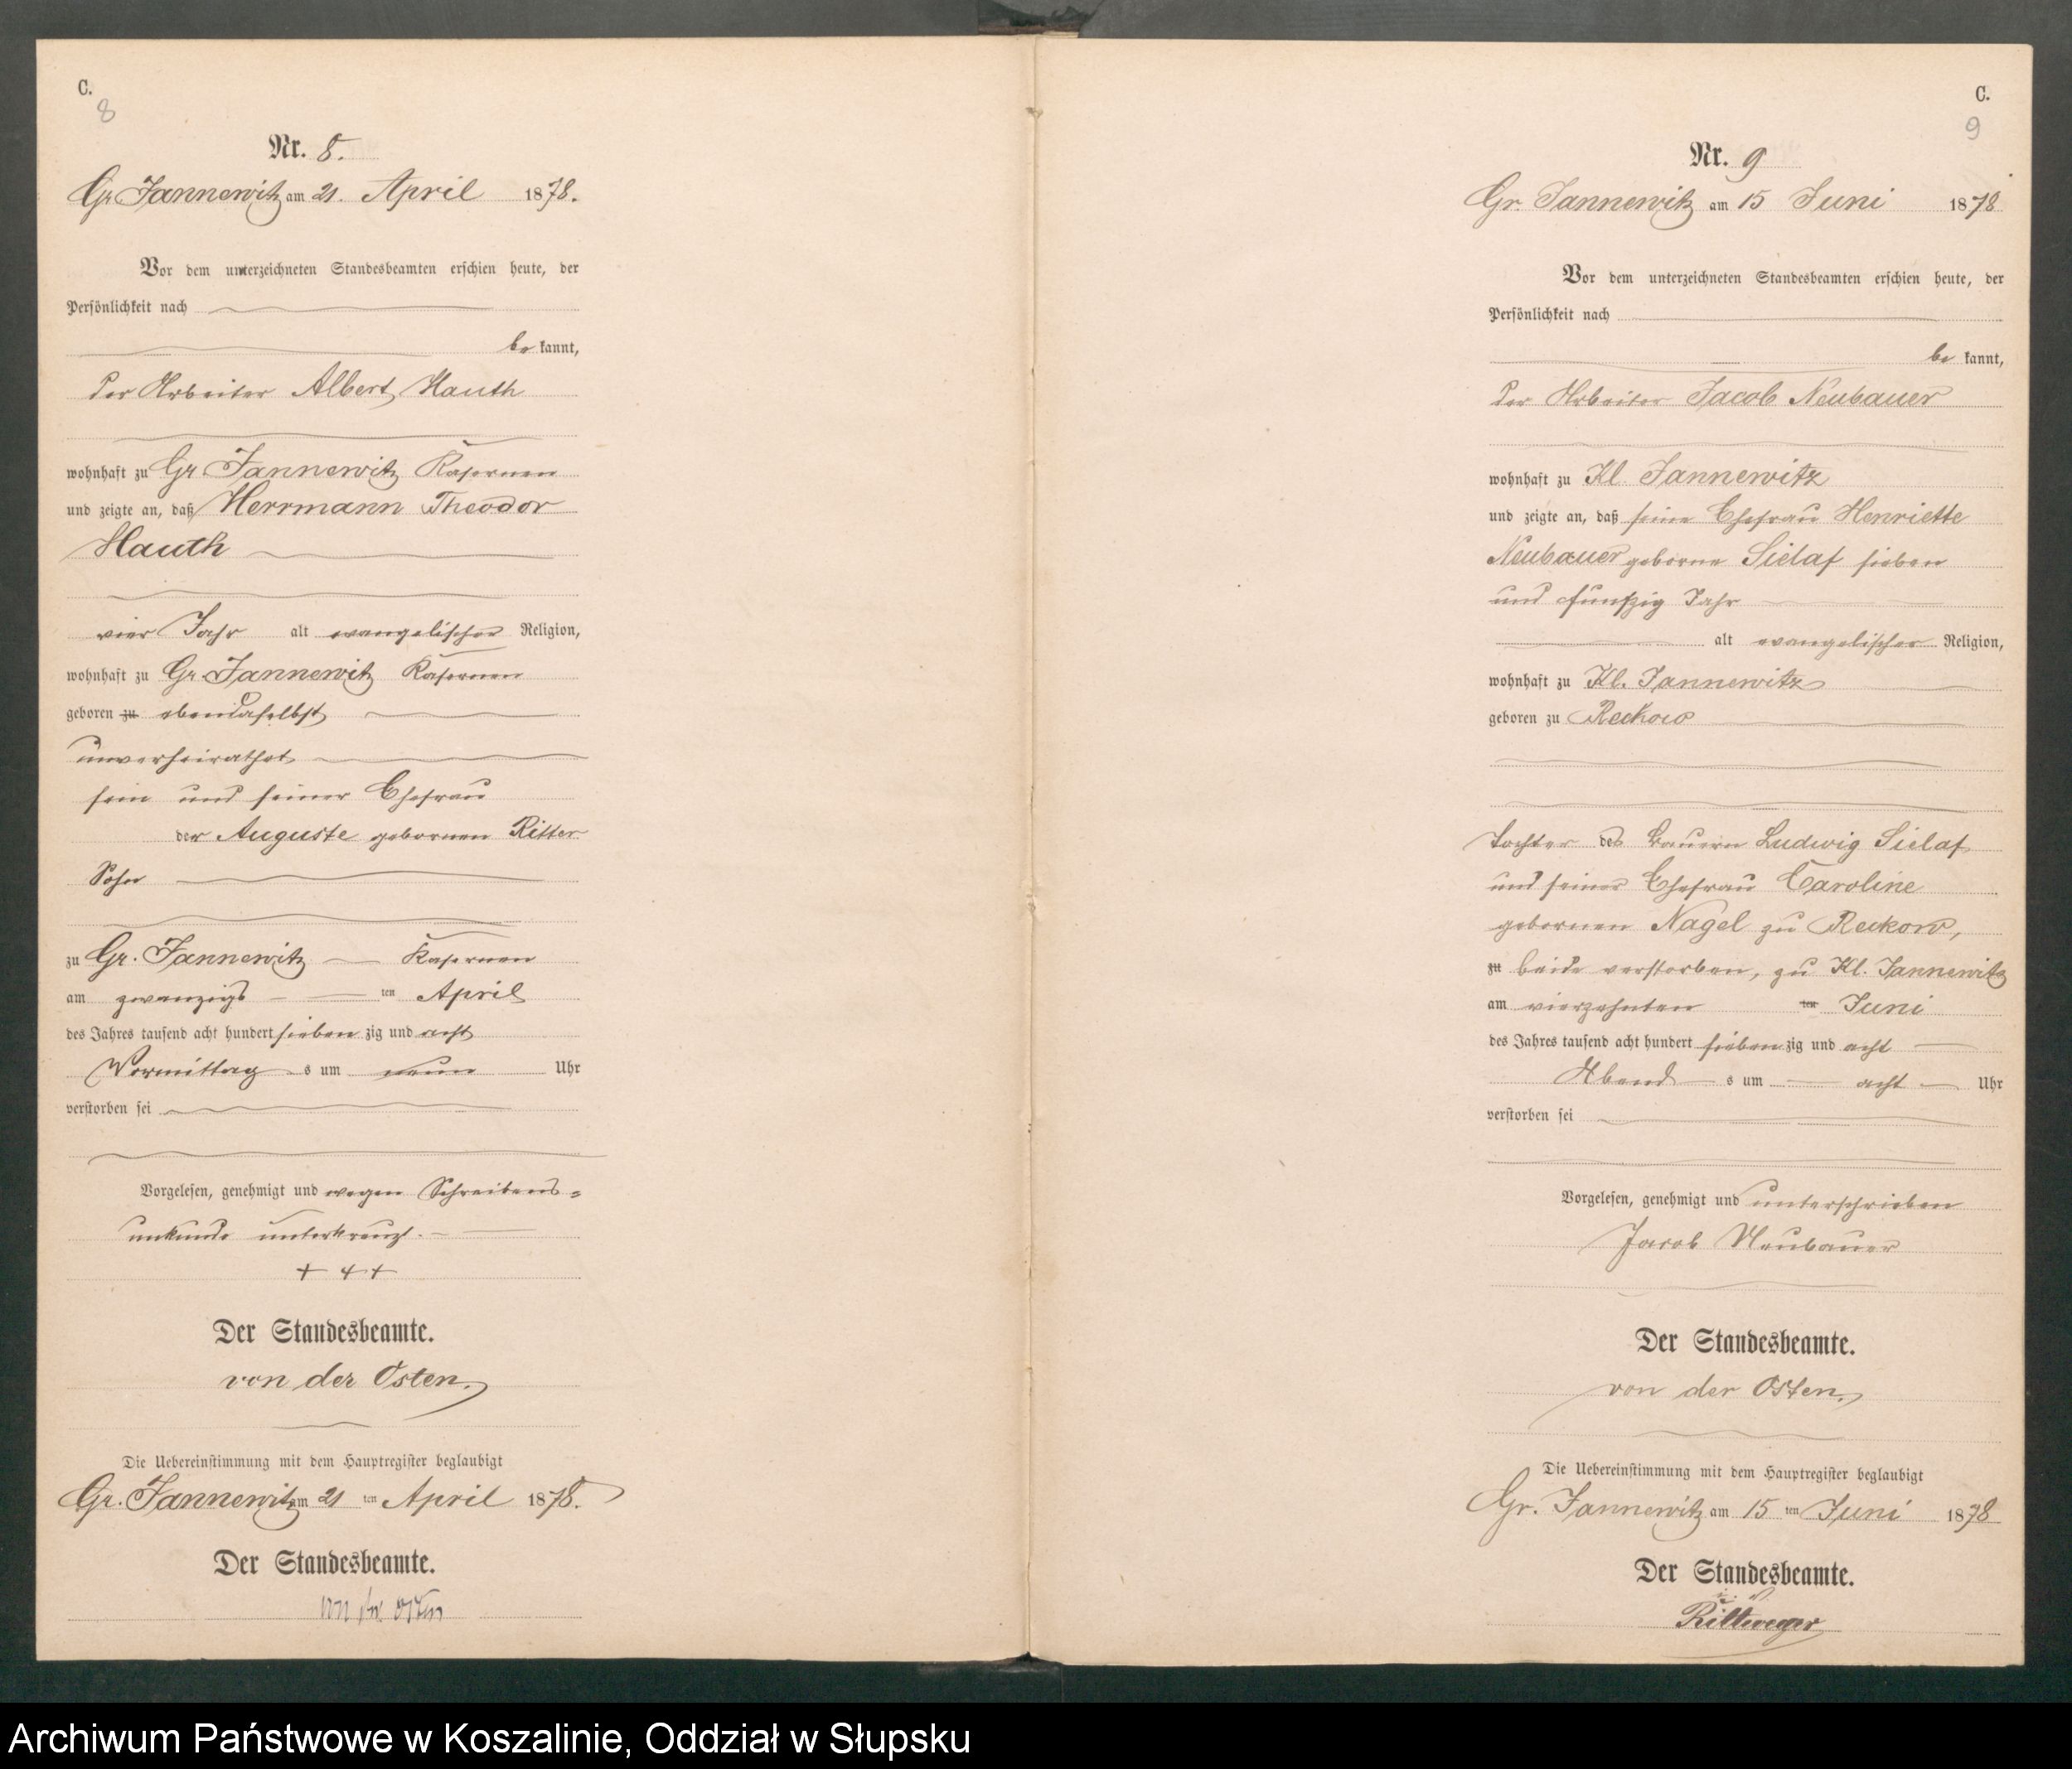 C.
8
Nr. 8.
Gr. Jannewitz am 21. April 1878.
Vor dem unterzeichneten Standesbeamten erschien heute, der
Persönlichkeit nach
be kannt,
der Arbeiter Albert Hauth
wohnhaft zu Gr. Jannewitz Kasernen
und zeigte an, daß Herrmann Theodor
Hauth
vier Jahr alt evangelischer Religion,
wohnhaft zu Gr. Jannewitz Kasernen
geboren zu ebendaselbst
unverheirathet
sein und seiner Ehefrau
der Auguste gebornen Ritter
Sohn
zu Gr. Jannewitz Kasernen
am zwanzigs ten April
des Jahres tausend acht hundert sieben zig und acht
Vormittag s um neun Uhr
verstorben sei
Vorgelesen, genehmigt und wegen Schreibens-
unkunde unterkreuzt.
+ + +
Der Standesbeamte.
von der Osten.
Die Uebereinstimmung mit dem Hauptregister beglaubigt
Gr. Jannewitz am 21 ten April 1878.
Der Standesbeamte.
von der Osten
C.
9
Nr. 9
Gr. Jannewitz am 15 Juni 1878
Vor dem unterzeichneten Standesbeamten erschien heute, der
Persönlichkeit nach
be kannt,
der Arbeiter Jacob Neubauer
wohnhaft zu Kl. Jannewitz
und zeigte an, daß seine Ehefrau Henriette
Neubauer geborne Sielaf sieben
und funfzig Jahr
alt evangelischer Religion,
wohnhaft zu Kl. Jannewitz
geboren zu Reckow
Tochter des Bauern Ludwig Sielaf
und seiner Ehefrau Caroline
gebornen Nagel zu Reckow,
zu beide verstorben, zu Kl. Jannewitz
am vierzehnten ten Juni
des Jahres tausend acht hundert sieben zig und acht
Abend s um acht Uhr
verstorben sei
Vorgelesen, genehmigt und unterschrieben
Jacob Neubauer
Der Standesbeamte.
von der Osten.
Die Uebereinstimmung mit dem Hauptregister beglaubigt
Gr. Jannewitz am 15 ten Juni 1878
Der Standesbeamte.
Rittweger
Archiwum Państwowe w Koszalinie, Oddział w Słupsku